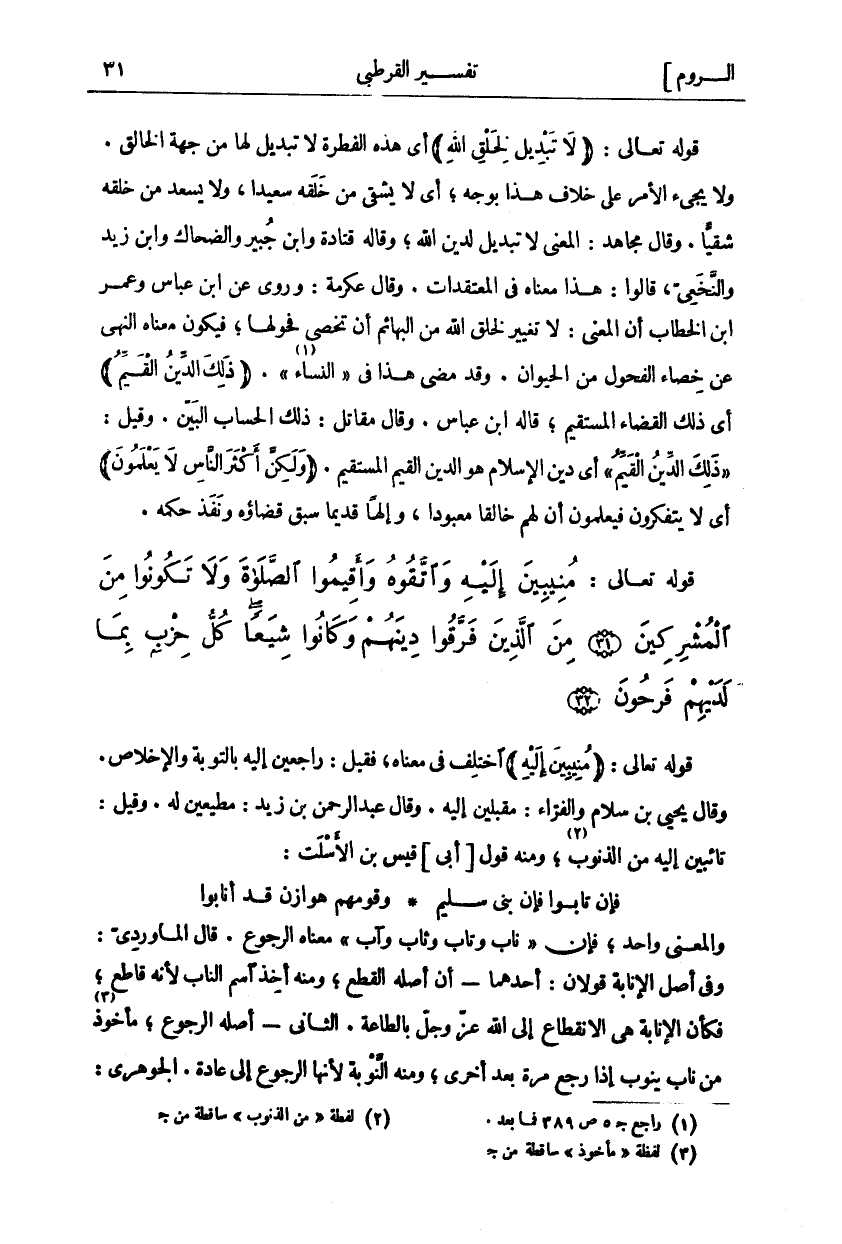 الـــروم] تفســـير القرطبي ٣١
قوله تعـالى : ﴿لَا تَبْدِيلَ لِخَلْقِ اللهِ﴾ أى هذه الفطرة لا تبديل لها من جهة الخالق .
ولا يجىء الأمر على خلاف هـذا بوجه ؛ أى لا يشقى من خَلَقه سعيدا ، ولا يسعد من خلقه
شقيًّا . وقال مجاهد : المعنى لا تبديل لدين الله ؛ وقاله قتادة وابن جُبير والضحاك وابن زيد
والنَّخَعِىّ ، قالوا : هـذا معناه فى المعتقدات . وقال عكرمة : وروى عن ابن عباس وعمـر
ابن الخطاب أن المعنى : لا تغيير لخلق الله من البهائم أن تخصى فحولهـا ؛ فيكون معناه النهى
عن خِصاء الفحول من الحيوان . وقد مضى هـذا فى « النساء »(١) . ﴿ذَلِكَ الدِّينُ الْقَـيِّمُ﴾
أى ذلك القضاء المستقيم ؛ قاله ابن عباس . وقال مقاتل : ذلك الحساب البَيّن . وقيل :
«ذَلِكَ الدِّينُ الْقَيِّمُ» أى دين الإسلام هو الدين القيم المستقيم . ﴿وَلَكِنَّ أَكْثَرَ النَّاسِ لَا يَعْلَمُونَ﴾
أى لا يتفكرون فيعلمون أن لهم خالقا معبودا ، وإلهًا قديما سبق قضاؤه ونَفَذ حكمه .
قوله تعـالى : مُنِيبِينَ إِلَيْـهِ وَٱتَّقُوهُ وَأَقِيمُوا ٱلصَّلَوٰةَ وَلَا تَـكُونُوا مِنَ
ٱلْمُشْرِكِينَ ﴿٣١﴾ مِنَ ٱلَّذِينَ فَرَّقُوا دِينَهُـمْ وَكَانُوا شِيَعًا ۖ كُلُّ حِزْبٍ بِمَـا
لَدَيْهِمْ فَرِحُونَ ﴿٣٢﴾
قوله تعالى : ﴿مُنِيبِينَ إِلَيْهِ﴾ ٱختلِف فى معناه، فقيل : راجعين إليه بالتوبة والإخلاص.
وقال يحيى بن سلام والفرّاء : مقبلين إليه . وقال عبدالرحمن بن زيد : مطيعين له . وقيل :
تائبين إليه من الذنوب(٢) ؛ ومنه قول [أبى] قيس بن الأَسْلَت :
فإن تابـوا فإن بنى ســـليم * وقومهم هوازن قـد أنابوا
والمعـنى واحد ؛ فإن « ناب وتاب وثاب وآب » معناه الرجوع . قال المـاوردىّ :
وفى أصل الإنابة قولان : أحدهمـا — أن أصله القطع ؛ ومنه أخِذ ٱسم الناب لأنه قاطع ؛
فكأن الإنابة هى الانقطاع إلى الله عزّ وجلّ بالطاعة . الثـانى — أصله الرجوع ؛ مأخوذ(٣)
من ناب ينوب إذا رجع مرة بعد أخرى ؛ ومنه النَّوْبة لأنها الرجوع إلى عادة . الجوهرى :
(١) راجع جـ ٥ ص ٣٨٩ فـا بعد . (٢) لفظة « من الذنوب » ساقطة من جـ
(٣) لفظة « مأخوذ » ساقطة من جـ